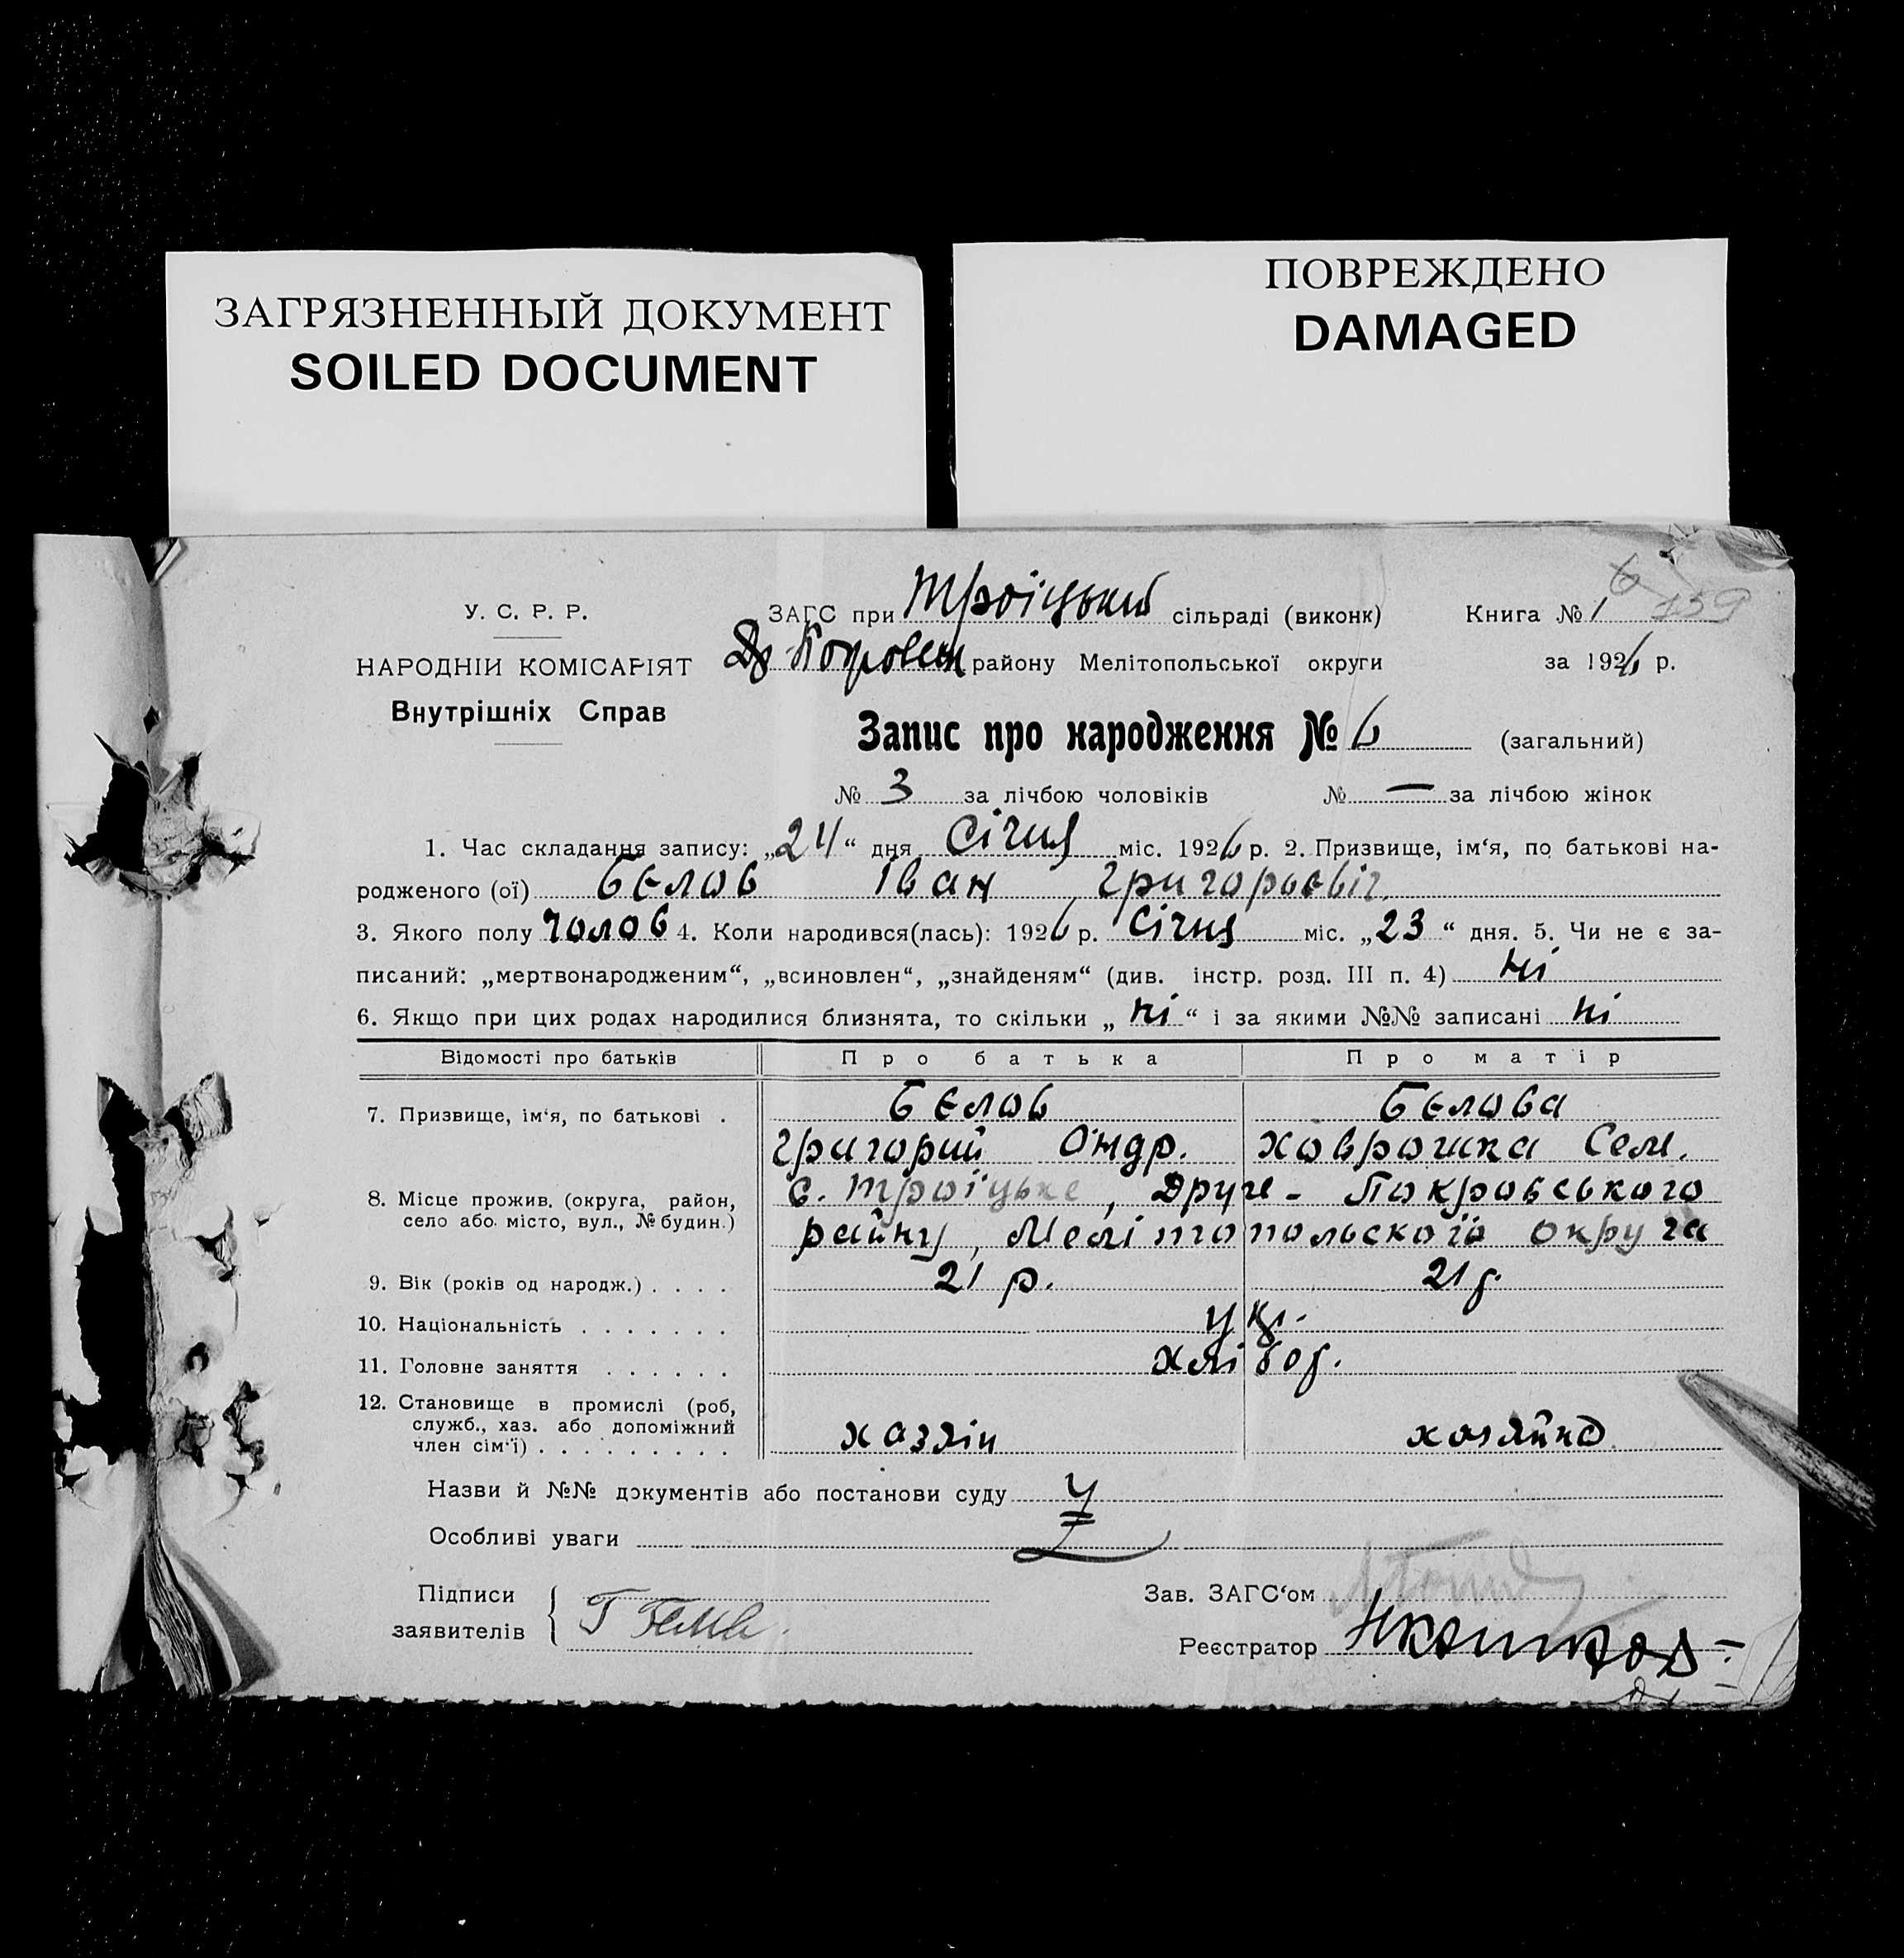 ЗАГРЯЗНЕННЫЙ ДОКУМЕНТ
SOILED DOCUMENT
ПОВРЕЖДЕНО
DAMAGED
6
159
У. С. Р. Р.
НАРОДНІЙ КОМІСАРІЯТ
Внутрішніх Справ
ЗАГС при Троіцький сільраді (виконк) Книга № 1
Др Покровськ району Мелітопольської округи за 1926 р.
Запис про народження № 6 (загальний)
№ 3 за лічбою чоловіків № — за лічбою жінок
1. Час складання запису: „24“ дня Січня міс. 1926 р. 2. Призвище, ім‘я, по батькові на-
родженого (ої) Бєлов Іван Григорьєвіч
3. Якого полу чолов 4. Коли народився(лась): 1926 р. Січня міс. „23“ дня. 5. Чи не є за-
писаний: „мертвонародженим“, „всиновлен“, „знайденям“ (див. інстр. розд. III п. 4) Ні
6. Якщо при цих родах народилися близнята, то скільки „Ні“ і за якими №№ записані Ні
Відомості про батьків Про батька Про матір
7. Призвище, ім‘я, по батькові . Бєлов Бєлова
Григорий Ондр. Ховрошка Сем.
8. Місце прожив. (округа, район, село або місто, вул., № будин.) с. Троіцьке, Друге-Покровського
району, Мелітопольскоїо округа
9. Вік (років од народж.) . . . . 21 р. 21 р.
10. Національність . . . . . . . укр.
11. Головне заняття . . . . . . хлібор.
12. Становище в промислі (роб, служб., хаз. або допоміжний член сім‘ї) . . . . . . . . . хазяін хозяйка
Назви й №№ документів або постанови суду
Особливі уваги
Підписи
заявителів
Г Бєлов
Зав. ЗАГС‘ом
Реєстратор